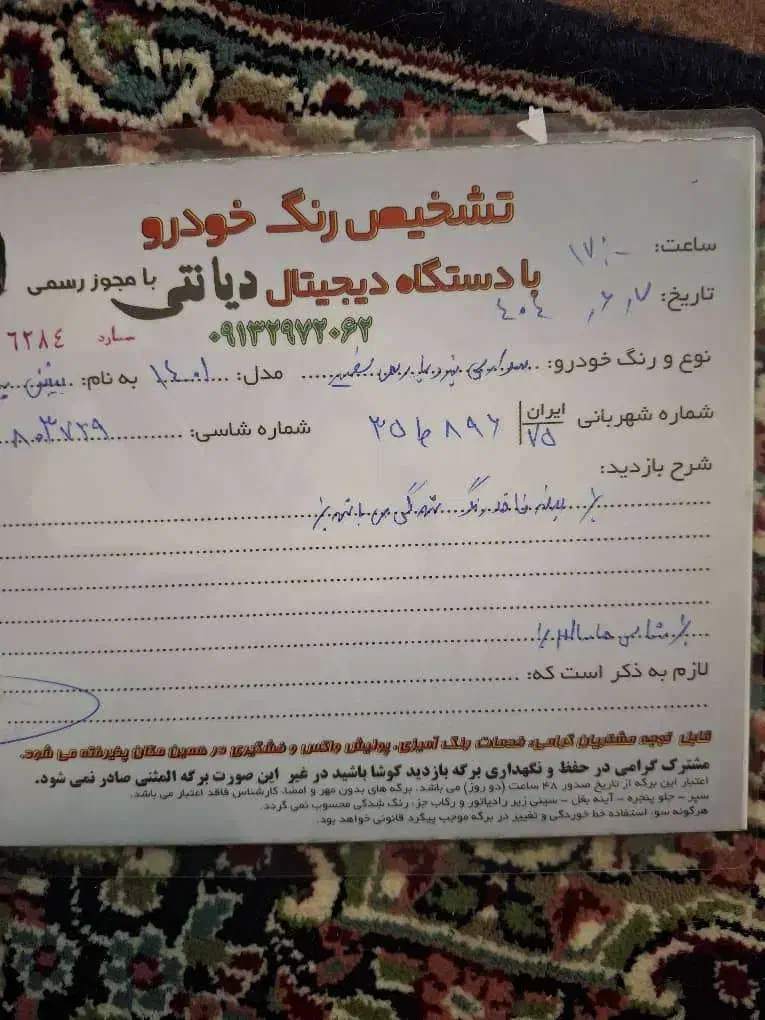 تشخیص رنگ خودرو
با دستگاه دیجیتال دیانتی با مجوز رسمی
۰۹۱۳۲۹۷۲۰۶۲ شماره ٦٢٨٤
ساعت: ۱۷:۰۰
تاریخ: ۴۰۴ ، ۶ ، ۷
نوع و رنگ خودرو: سواری مدل: ۱۴۰۱ به نام:
شماره شهربانی ایران ۷۵ ۸۹۶ ط ۳۵ شماره شاسی: ۸۰۳۷۲۹
شرح بازدید:
فاقد رنگ شدگی می باشد
شاسی ها سالم
لازم به ذکر است که:
قابل توجه مشتریان گرامی: خدمات رنگ آمیزی، پولیش واکس و خشگیری در همین مکان پذیرفته می شود.
مشترک گرامی در حفظ و نگهداری برگه بازدید کوشا باشید در غیر این صورت برگه المثنی صادر نمی شود.
اعتبار این برگه از تاریخ صدور ۴۸ ساعت (دو روز) می باشد. برگه های بدون مهر و امضاء کارشناس فاقد اعتبار می باشد.
سپر - جلو پنجره - آینه بغل - سینی زیر رادیاتور و رکاب جز، رنگ شدگی محسوب نمی گردد.
هرگونه سو، استفاده خط خوردگی و تغییر در برگه موجب پیگرد قانونی خواهد بود.